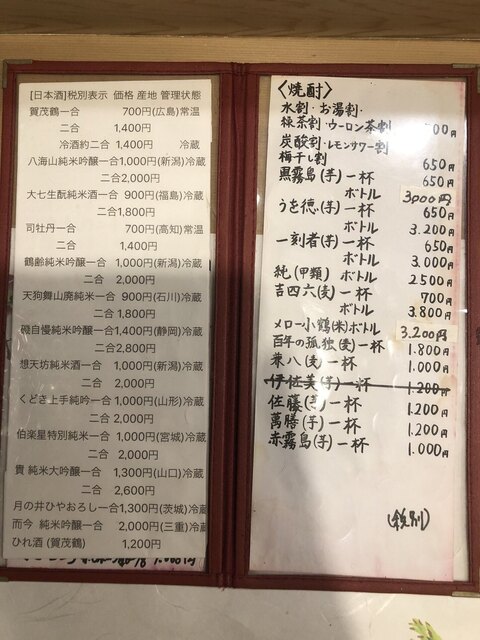 [日本酒]税別表示 価格 産地 管理状態
賀茂鶴一合 700円(広島)常温
二合 1,400円
冷酒約二合 1,400円 冷蔵
八海山純米吟醸一合1,000円(新潟)冷蔵
二合2,000円
大七生酛純米酒一合 900円(福島)冷蔵
二合1,800円
司牡丹一合 700円(高知)常温
二合 1,400円
鶴齢純米吟醸一合 1,000円(新潟)冷蔵
二合 2,000円
天狗舞山廃純米一合 900円(石川)冷蔵
二合 1,800円
磯自慢純米吟醸一合1,400円(静岡)冷蔵
二合2,800円
想天坊純米酒一合 1,000円(新潟)冷蔵
二合 2,000円
くどき上手純吟一合 1,000円(山形)冷蔵
二合 2,000円
伯楽星特別純米一合 1,000円(宮城)冷蔵
二合 2,000円
貴 純米大吟醸一合 1,300円(山口)冷蔵
二合 2,600円
月の井ひやおろし一合1,300円(茨城)冷蔵
而今 純米吟醸一合 2,000円(三重)冷蔵
ひれ酒 (賀茂鶴) 1,200円
〈焼酎〉
水割・お湯割・
緑茶割・ウーロン茶割 00円
炭酸割・レモンサワー割
梅干し割 650円
黒霧島(芋)一杯 650円
ボトル 3000円
うを徳(芋)一杯 650円
ボトル 3.200円
一刻者(芋)一杯 650円
ボトル 3.000円
純(甲類) ボトル 2500円
吉四六(麦)一杯 700円
ボトル 3.800円
メロー小鶴(米)ボトル 3.200円
百年の孤独(麦)一杯 1.800円
兼八(麦)一杯 1.000円
伊佐美(芋)一杯 1.200円
佐藤(芋)一杯 1.200円
萬膳(芋)一杯 1.200円
赤霧島(芋)一杯 1.000円
(税別)